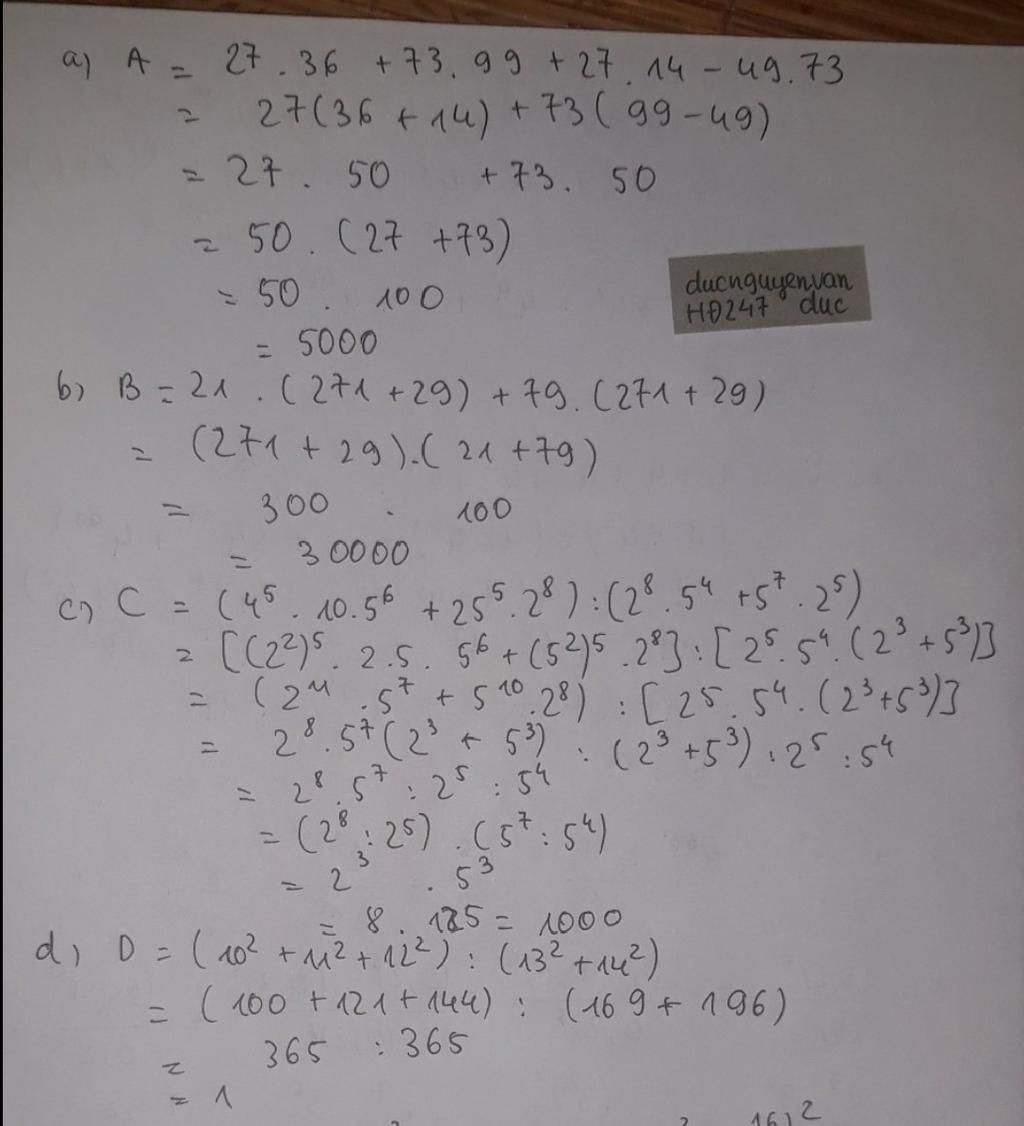 a) A = 27 . 36 + 73 . 99 + 27 . 14 - 49 . 73
= 27(36 + 14) + 73(99 - 49)
= 27 . 50 + 73 . 50
= 50 . (27 + 73)
= 50 . 100
= 5000
ducnguyenvan
HĐ247 duc
b) B = 21 . (271 + 29) + 79 . (271 + 29)
= (271 + 29) . (21 + 79)
= 300 . 100
= 30000
c) C = (4⁵ . 10 . 5⁶ + 25⁵ . 2⁸) : (2⁸ . 5⁴ + 5⁷ . 2⁵)
= [(2²)⁵ . 2 . 5 . 5⁶ + (5²)⁵ . 2⁸] : [2⁵ . 5⁴ . (2³ + 5³)]
= (2¹¹ . 5⁷ + 5¹⁰ . 2⁸) : [2⁵ . 5⁴ . (2³ + 5³)]
= 2⁸ . 5⁷ (2³ + 5³) : (2³ + 5³) : 2⁵ : 5⁴
= 2⁸ . 5⁷ : 2⁵ : 5⁴
= (2⁸ : 2⁵) . (5⁷ : 5⁴)
= 2³ . 5³
= 8 . 125 = 1000
d) D = (10² + 11² + 12²) : (13² + 14²)
= (100 + 121 + 144) : (169 + 196)
= 365 : 365
= 1